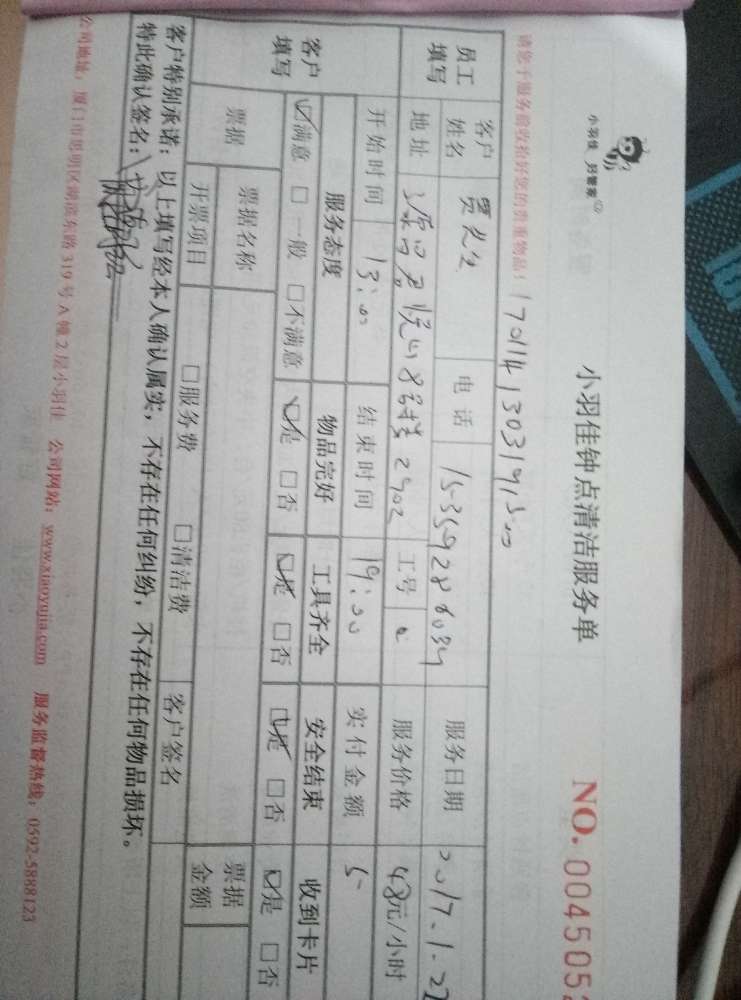 小羽佳 好管家
小羽佳钟点清洁服务单 NO. 0045052
请您于服务前收拾好您的贵重物品! 170114130319500
员工填写 客户姓名 贾先生 电话 15359286034 服务日期 2017.1.27
地址 悦山8号楼2902 工号 服务价格 48元/小时
开始时间 13:00 结束时间 19:00 实付金额
客户填写 服务态度 物品完好 工具齐全 安全结束 收到卡片
☑满意 □一般 □不满意 ☑是 □否 ☑是 □否 ☑是 □否 ☑是 □否
票据 票据名称 票据金额
开票项目 □服务费 □清洁费 客户签名
客户特别承诺:以上填写经本人确认属实,不存在任何纠纷,不存在任何物品损坏。
特此确认签名:
公司地址:厦门市思明区湖滨东路319号A幢2层小羽佳 公司网站:www.xiaoyujia.com 服务监督热线:0592-5888123